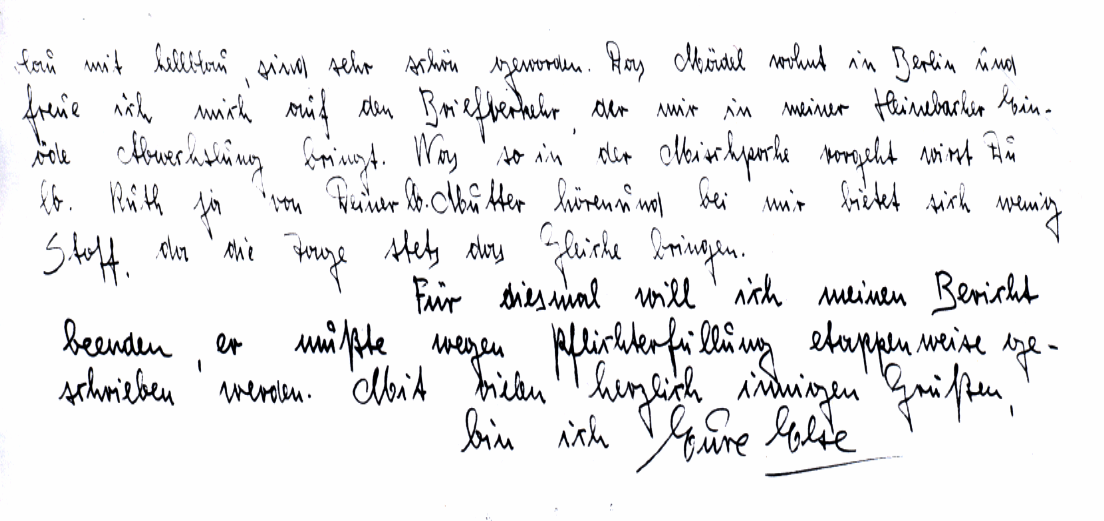 blau mit hellblau, sind sehr schön geworden. Das Mädel wohnt in Berlin und
freue ich mich auf den Briefverkehr, der mir in meiner Heinebacher Ein-
öde Abwechslung bringt. Was so in der Mischpoche vorgeht wirst Du
lb. Ruth ja von Deiner lb. Mutter hören und bei mir bietet sich wenig
Stoff, da die Tage stets das Gleiche bringen.
Für diesmal will ich meinen Bericht
beenden, er mußte wegen Pflichterfüllung etappenweise ge-
schrieben werden. Mit vielen herzlich innigen Grüßen,
bin ich Eure Else